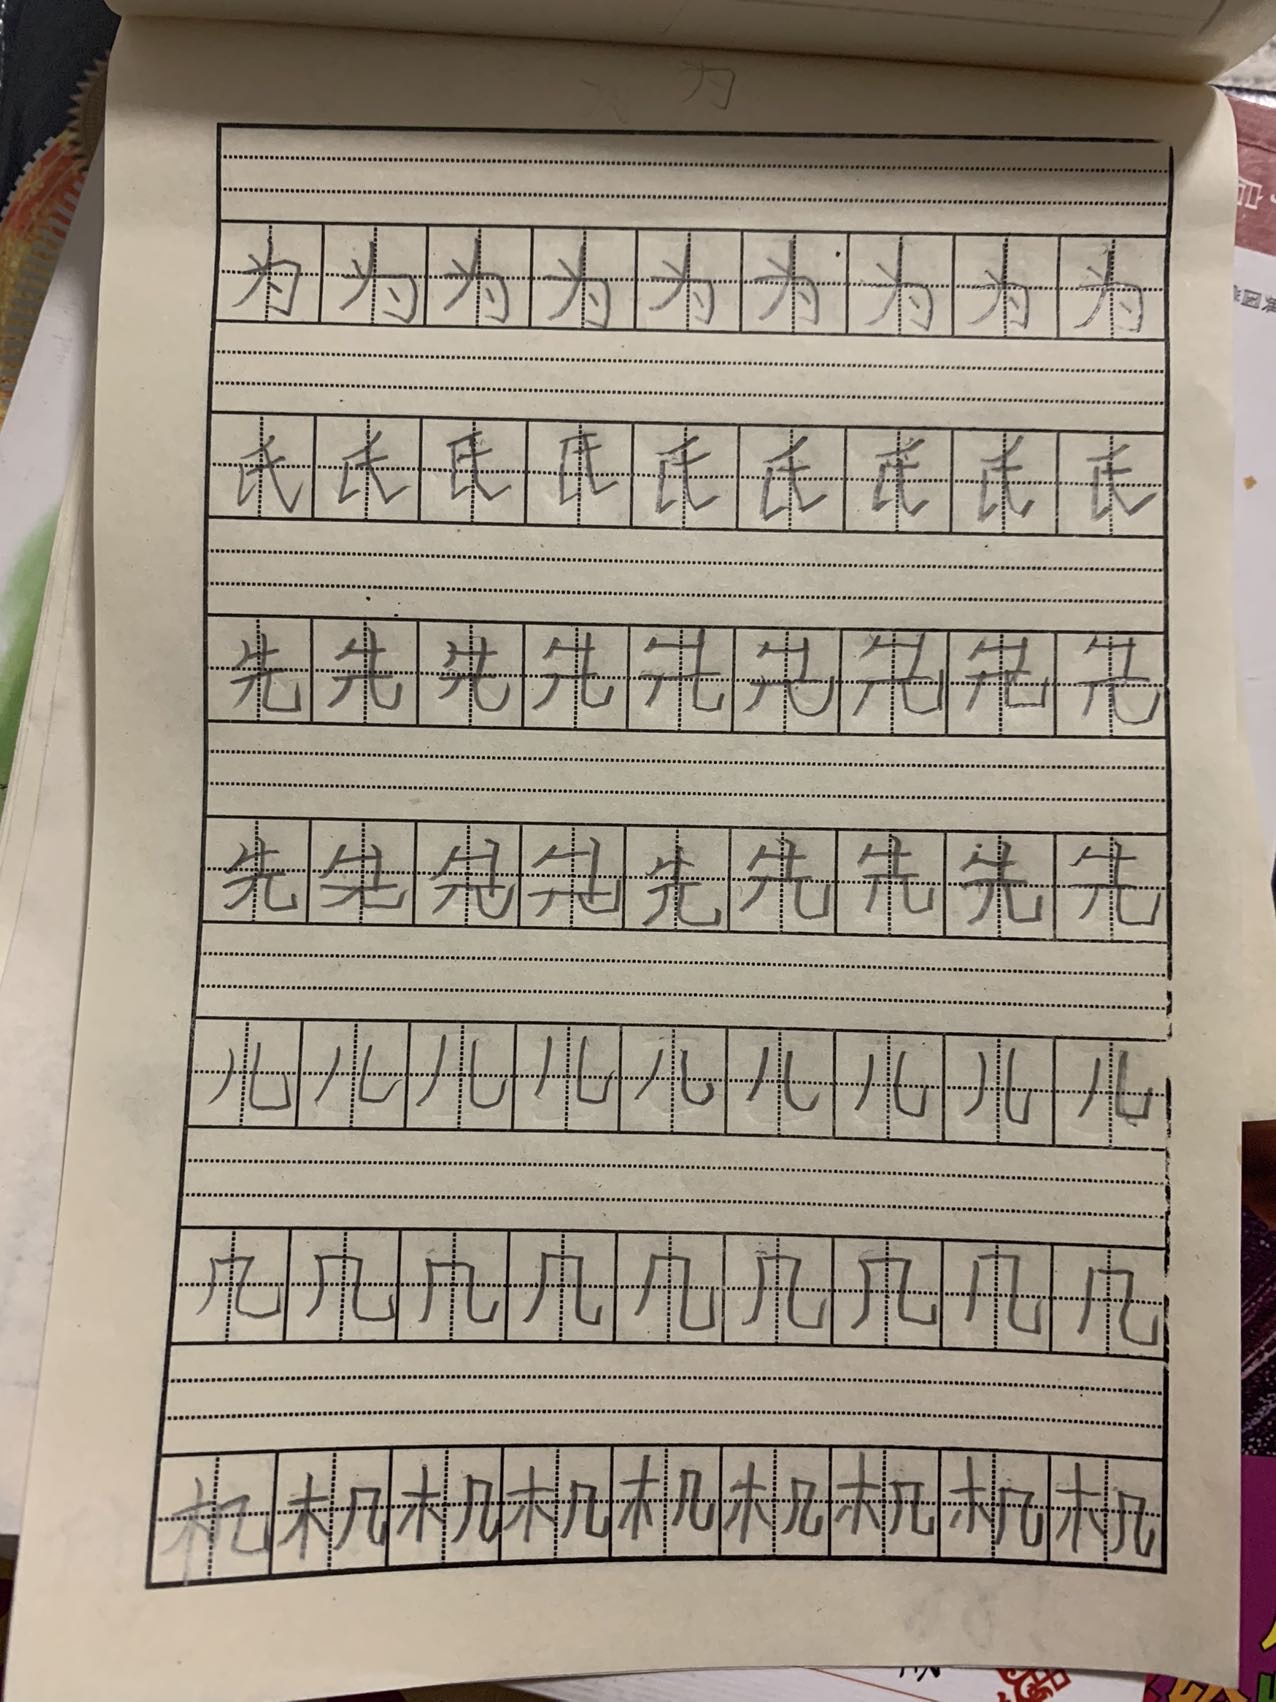 为
为为为为为为为为为
氏氏氏氏氏氏氏氏氏
先先先先先先先先先
先先先先先先先先先
儿儿儿儿儿儿儿儿儿
几几几几几几几几几
机机机机机机机机机